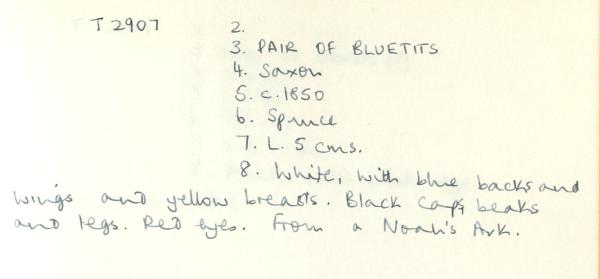 T 2907 2.
3. PAIR OF BLUETITS
4. Saxon
5. c.1850
6. Spruce
7. L. 5 cms.
8. White, with blue backs and
wings and yellow breasts. Black caps, beaks
and legs. Red eyes. From a Noah's Ark.